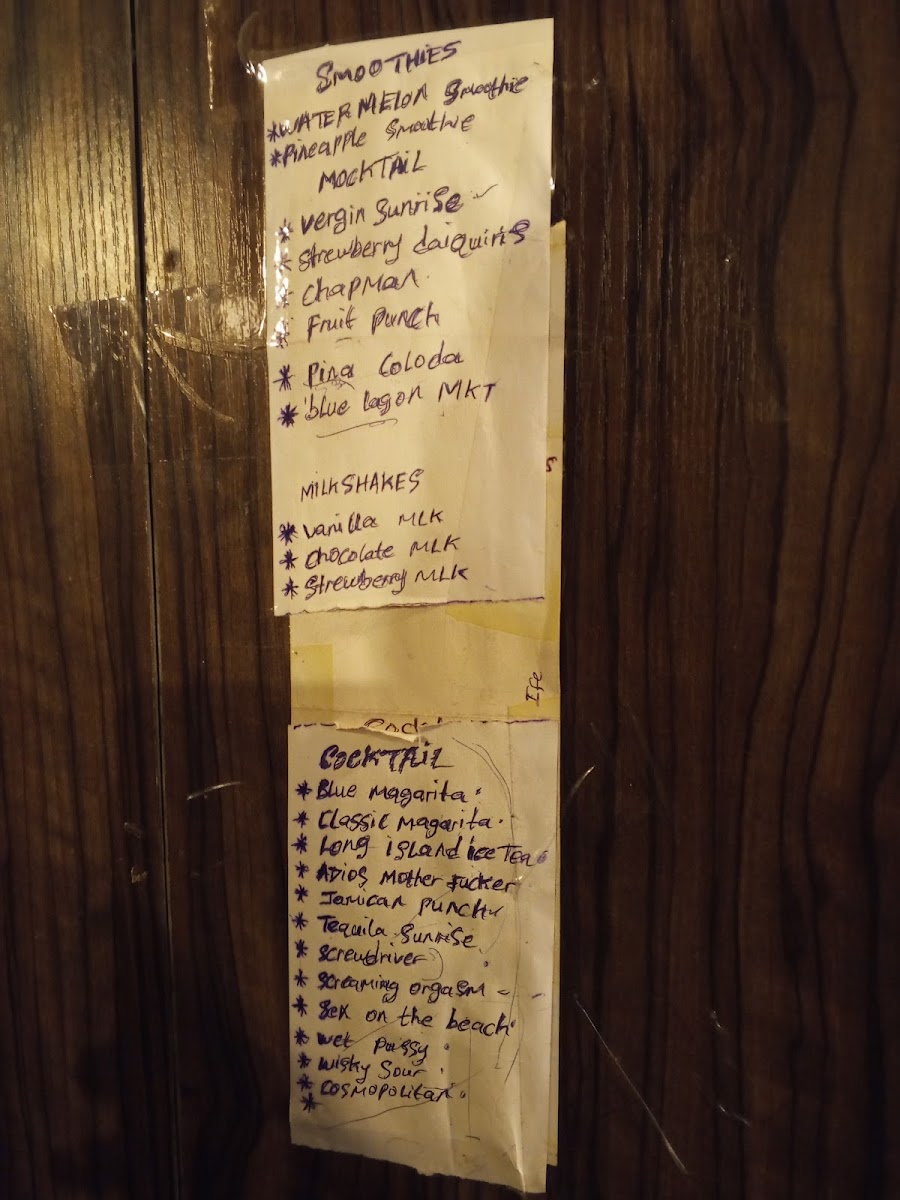 SMOOTHIES
*WATER MELON Smoothie
*Pineapple Smoothie
MOCKTAIL
* vergin Sunrise
* Strewberry daiquiris
* Chapman.
* Fruit Punch
* Pina Coloda
* blue lagon MKT
MILKSHAKES
* vanilla MLK
* chocolate MLK
* Strewberry MLK
Ife
COCKTAIL
* Blue magarita.
* Classic magarita.
* Long island ice Tea
* ADIOS Mother Fucker
* Jamican punch
* Tequila Sunrise
* screwdriver
* Screaming orgasm
* Sex on the beach.
* wet pussy.
* wisky Sour.
* cosmopolitan.
*